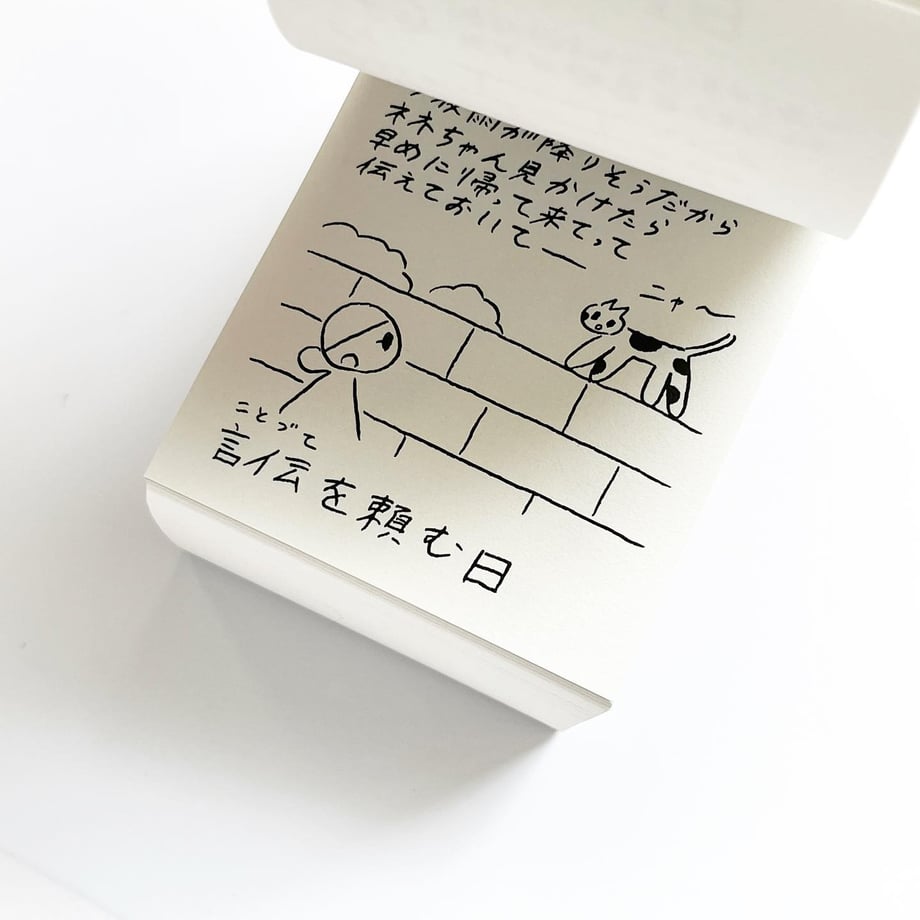 雨が降りそうだから
ネネちゃん見かけたら
早めに帰って来てって
伝えておいてー
ニャ〜
ことづて
言伝を頼む日